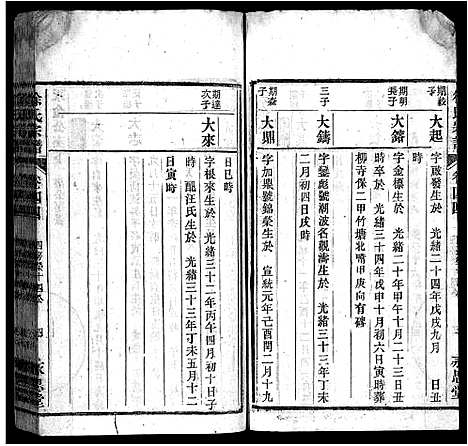 期發子 大起
字啟發生於 光緒二十四年戊戌九月 丑時
期明長子 大鎔
字金榛生於 光緒二十年甲午十月二十三日丑
時 光緒三十四年戊申十月初六日寅時葬
柳寺保二甲竹塘北嘴甲庚向有碑
三子 大鑄
字 號潮波名觀濤生於 光緒三十三年丁未
二月初四日戌時
期 子 大鼎
字加鼎號錦榮生於 宣統元年己酉閏二月十九
日巳時
期達次子 大來
字根來生於 光緒三十二年丙午四月初十日子
時 龍汪氏生於 光緒三十三年丁未五月十二
日寅時
徐氏宗譜
卷四四
四
永思堂